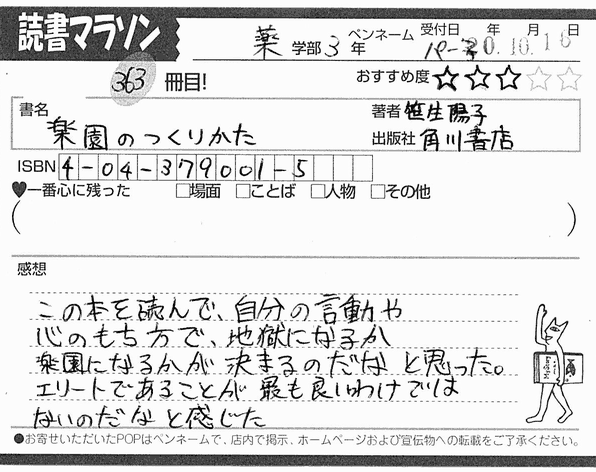 読書マラソン
薬学部3年 ペンネーム パーネ 受付日 年 月 日
20.10.16
363冊目!
おすすめ度★★★☆☆
書名 楽園のつくりかた
著者 笹生陽子
出版社 角川書店
ISBN 4-04-379001-5
♥一番心に残った □場面 □ことば □人物 □その他
( )
感想
この本を読んで、自分の言動や
心のもち方で、地獄になるか
楽園になるかが決まるのだなと思った。
エリートであることが最も良いわけでは
ないのだなと感じた
●お寄せいただいたPOPはペンネームで、店内で掲示、ホームページおよび宣伝物への転載をご了承ください。